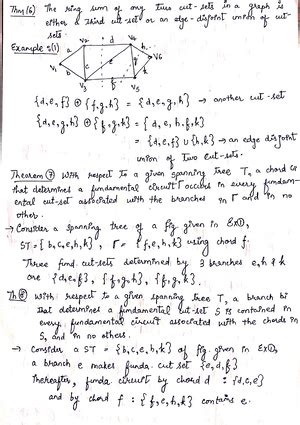 Thm(6) The ring sum of any two cut-sets in a graph is
either a third cut-set or an edge-disjoint union of cut-
sets.
Example 2(1)
a d
V1 V2 V4 h V6
b c e f g k
V3 V5
{d,e,f} ⊕ {f,g,h} = {d,e,g,h} → another cut-set
{d,e,g,h} ⊕ {f,g,k} = {d,e,h,f,k}
= {d,e,f} ∪ {h,k} → an edge disjoint
union of two cut-sets.
Theorem (7) With respect to a given spanning tree T, a chord Ci
that determines a fundamental circuit Γ occurs in every fundam-
ental cut-set associated with the branches in Γ and in no
other.
→ Consider a spanning tree of a fig given in Ex(1),
ST = {b,c,e,h,k}, Γ = {f,e,h,k} using chord f.
Three fund. cut-sets determined by 3 branches e,h & k
are {d,e,f}, {f,g,h}, {f,g,k}.
Th (8) With respect to a given spanning tree T, a branch bi
that determines a fundamental cut-set S is contained in
every fundamental circuit associated with the chords in
S, and in no others.
→ Consider a ST = {b,c,e,h,k} of fig. given in Ex(1),
a branch e makes funda. cut set {e,d,f}
Thereafter, funda circuit by chord d : {d,c,e}
and by chord f : {f,e,h,k} contains e.